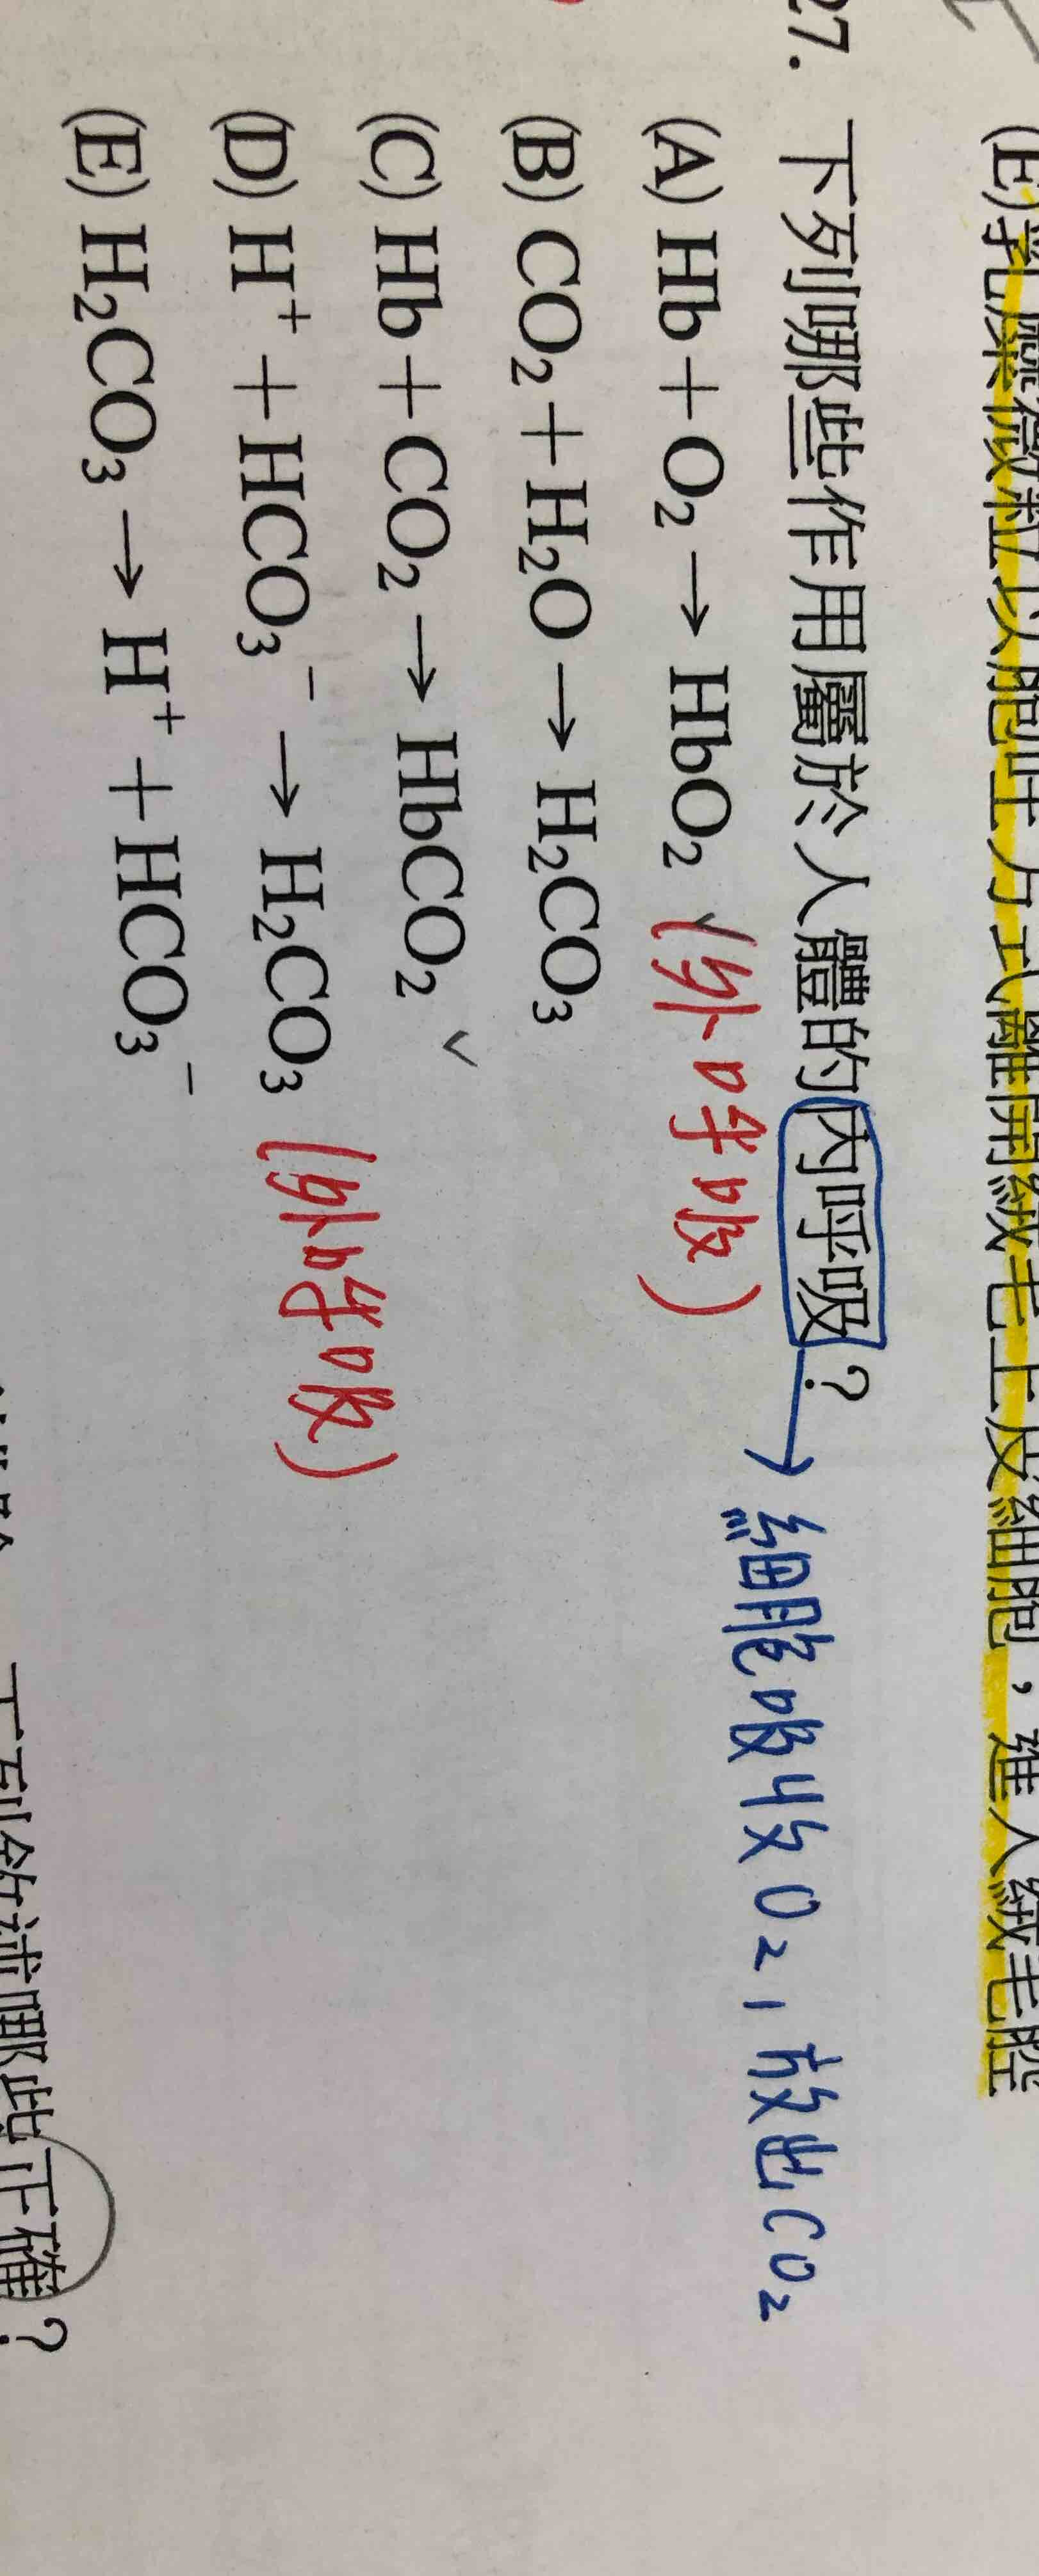 (E)乳糜微粒以胞吐方式離開絨毛上皮細胞，進入絨毛腔
27. 下列哪些作用屬於人體的內呼吸？→細胞吸收O₂，放出CO₂
(A) Hb＋O₂→HbO₂ (外呼吸)
(B) CO₂＋H₂O→H₂CO₃
(C) Hb＋CO₂→HbCO₂ ✓
(D) H⁺＋HCO₃⁻→H₂CO₃ (外呼吸)
(E) H₂CO₃→H⁺＋HCO₃⁻
下列敘述哪些正確？